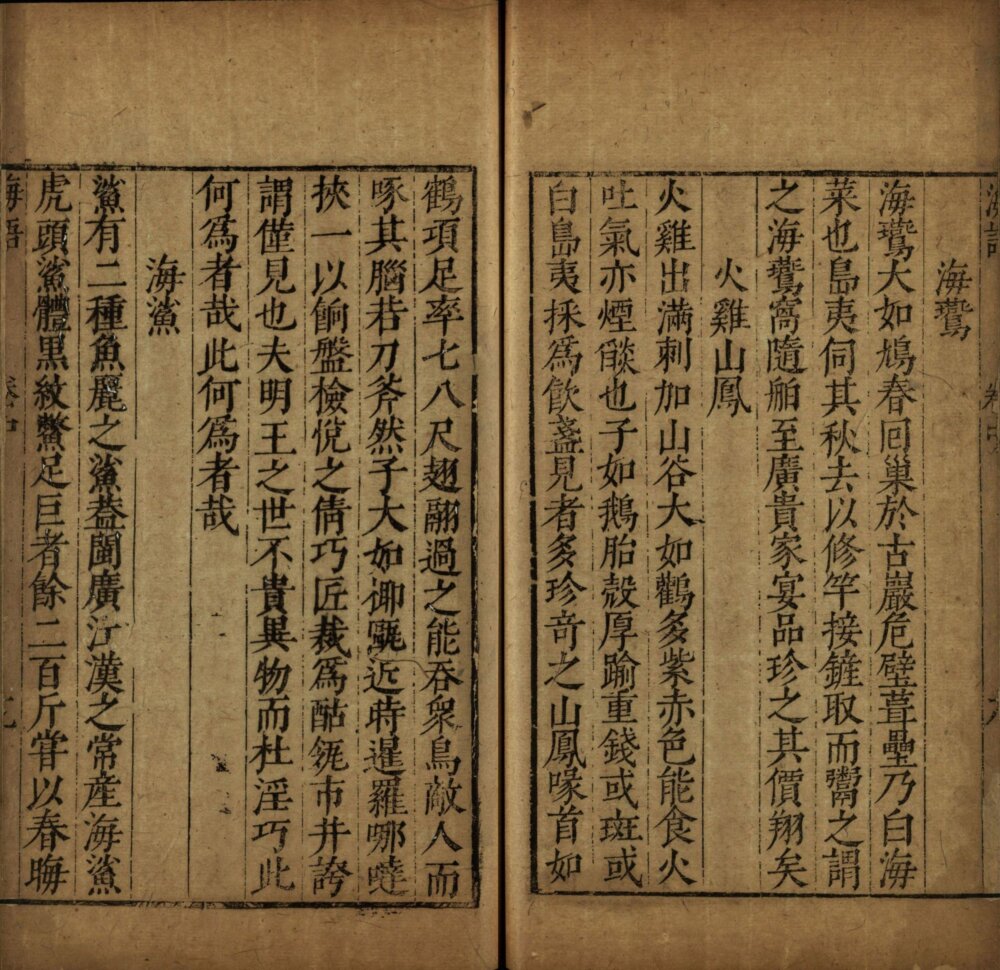 海語 卷中
海鷰
海鷰大如鳩春回巢於古巖危壁葺壘乃白海
菜也島夷伺其秋去以修竿接鏟取而鬻之謂
之海鷰窩隨舶至廣貴家宴品珍之其價翔矣
火雞山鳳
火雞出滿刺加山谷大如鸛多紫赤色能食火
吐氣亦煙燄也子如鵝胎殼厚踰重錢或斑或
白島夷採爲飲盞見者多珍竒之山鳳喙首如
鶴項足率七八尺翅翮過之能吞衆鳥敵人而
啄其腦若刀斧然子大如𭅺近時暹羅哪噠
挾一以餉盤檢悅之倩巧匠裁爲酤𦈢市井誇
謂僅見也夫明王之世不貴異物而杜淫巧此
何爲者哉此何爲者哉
海鯊
鯊有二種魚麗之鯊葢閩廣江漢之常産海鯊
虎頭鯊體黒紋鱉足巨者餘二百斤甞以春晦
海語 卷中